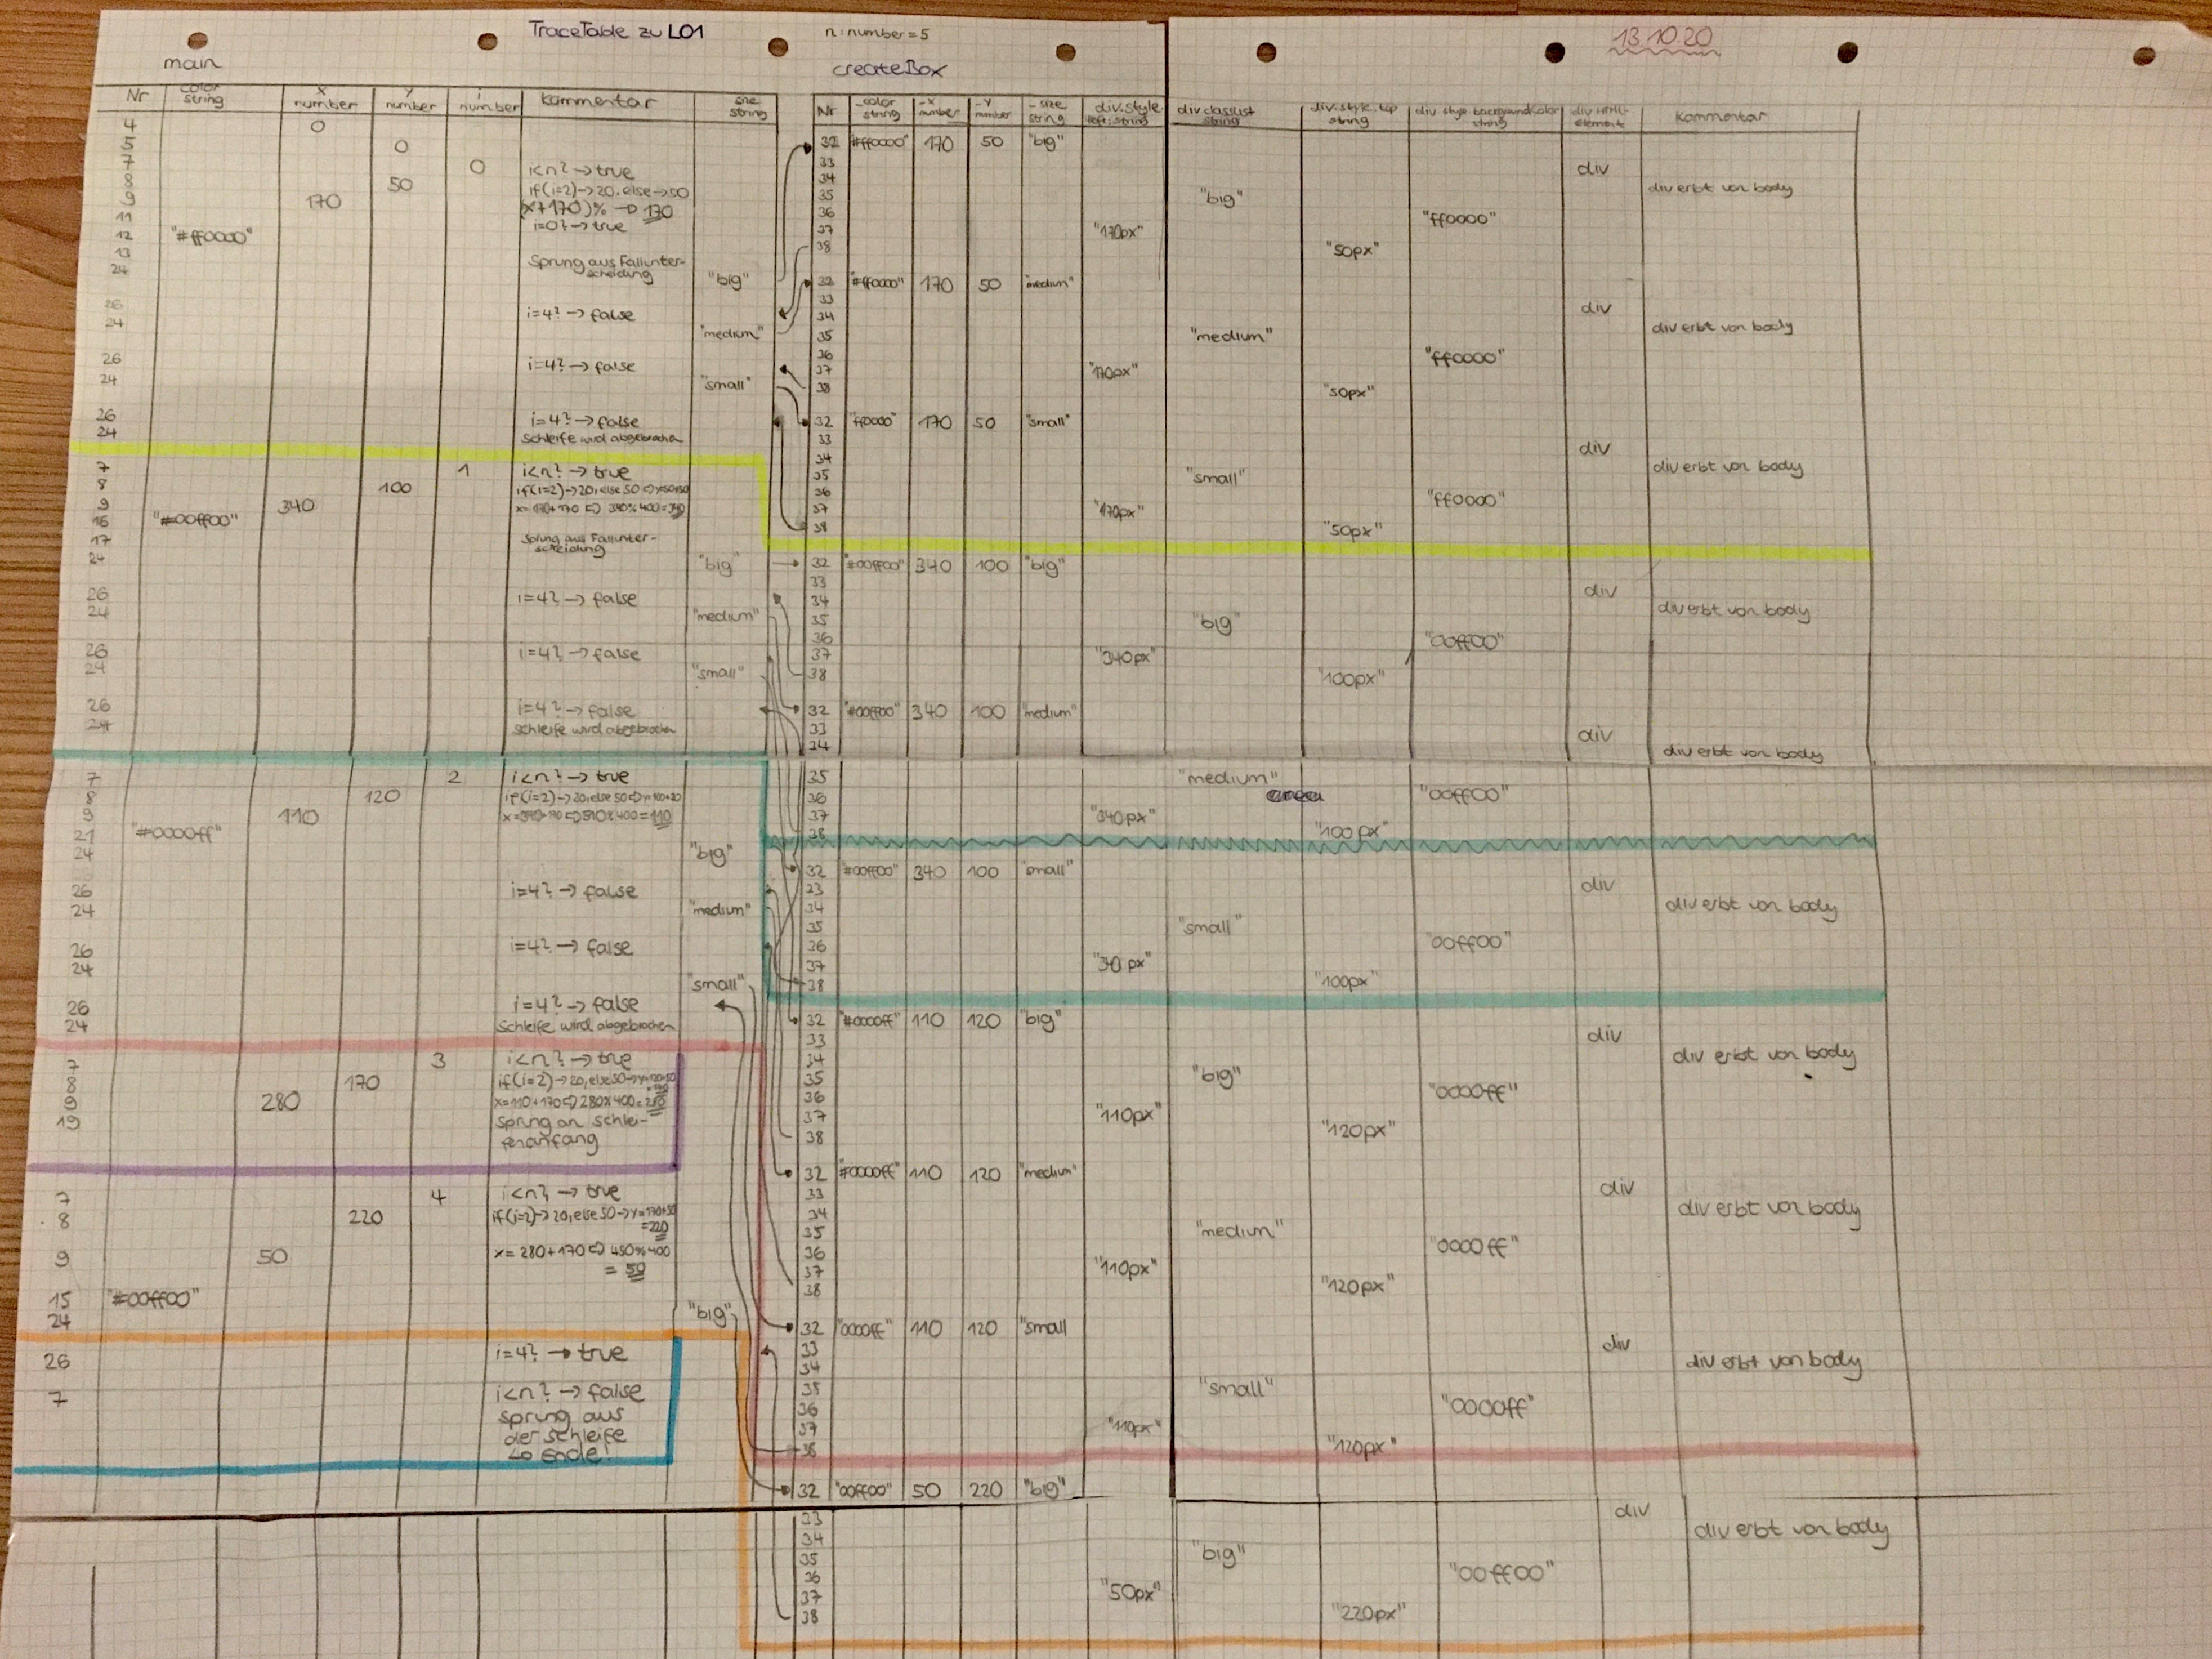 TraceTable zu L01
n: number = 5
13.10.20
main
createBox
Nr color string x number y number i number Kommentar size string
Nr _color string _x number _y number _size string div.style.left: string div.classlist string div.style.top string div.style.backgroundColor string div HTML-element Kommentar
4 0
5 0
7 0 i<n? → true
8 50 if(i=2)→20, else→50
9 170 (x+170)% → 170
11 i=0? → true
12 "#ff0000"
13 Sprung aus Fallunter-scheidung
24 "big"
26 i=4? → false
24 "medium"
26 i=4? → false
24 "small"
26 i=4? → false
24 Schleife wird abgebrochen
7 1 i<n? → true
8 100 if(i=2)→20, else 50 ⇨ y=50+50
9 340 x=170+170 ⇨ 340%400=340
16 "#00ff00"
17 Sprung aus Fallunter-scheidung
24 "big"
26 i=4? → false
24 "medium"
26 i=4? → false
24 "small"
26 i=4? → false
24 schleife wird abgebrochen
7 2 i<n? → true
8 120 if(i=2)→20, else 50 ⇨ y=100+20
9 110 x=340+170 ⇨ 510%400=110
21 "#0000ff"
24 "big"
26 i=4? → false
24 "medium"
26 i=4? → false
24 "small"
26 i=4? → false
24 Schleife wird abgebrochen
7 3 i<n? → true
8 170 if(i=2)→20, else 50→y=120+50 =170
9 280 x=110+170 ⇨ 280%400=280
19 Sprung an Schlei-fenanfang
7 4 i<n? → true
8 220 if(i=2)→20, else 50→y=170+50 =220
9 50 x=280+170 ⇨ 450%400 = 50
15 "#00ff00"
24 "big"
26 i=4? → true
7 i<n? → false
sprung aus
der schleife
↳ Ende!
32 "#ff0000" 170 50 "big"
33 div
34 div erbt von body
35 "big"
36 "ff0000"
37 "170px"
38 "50px"
32 "#ff0000" 170 50 "medium"
33 div
34 div erbt von body
35 "medium"
36 "ff0000"
37 "170px"
38 "50px"
32 "ff0000" 170 50 "small"
33 div
34 div erbt von body
35 "small"
36 "ff0000"
37 "170px"
38 "50px"
32 "#00ff00" 340 100 "big"
33 div
34 div erbt von body
35 "big"
36 "00ff00"
37 "340px"
38 "100px"
32 "#00ff00" 340 100 "medium"
33 div
34 div erbt von body
35 "medium"
36 "00ff00"
37 "340px"
38 "100px"
32 "#00ff00" 340 100 "small"
23 div
34 div erbt von body
35 "small"
36 "00ff00"
37 "340px"
38 "100px"
32 "#0000ff" 110 120 "big"
33 div
34 div erbt von body
35 "big"
36 "0000ff"
37 "110px"
38 "120px"
32 "#0000ff" 110 120 "medium"
33 div
34 div erbt von body
35 "medium"
36 "0000ff"
37 "110px"
38 "120px"
32 "0000ff" 110 120 "small
33 div
34 div erbt von body
35 "small"
36 "0000ff"
37 "110px"
38 "120px"
32 "00ff00" 50 220 "big"
33 div
34 div erbt von body
35 "big"
36 "00ff00"
37 "50px"
38 "220px"